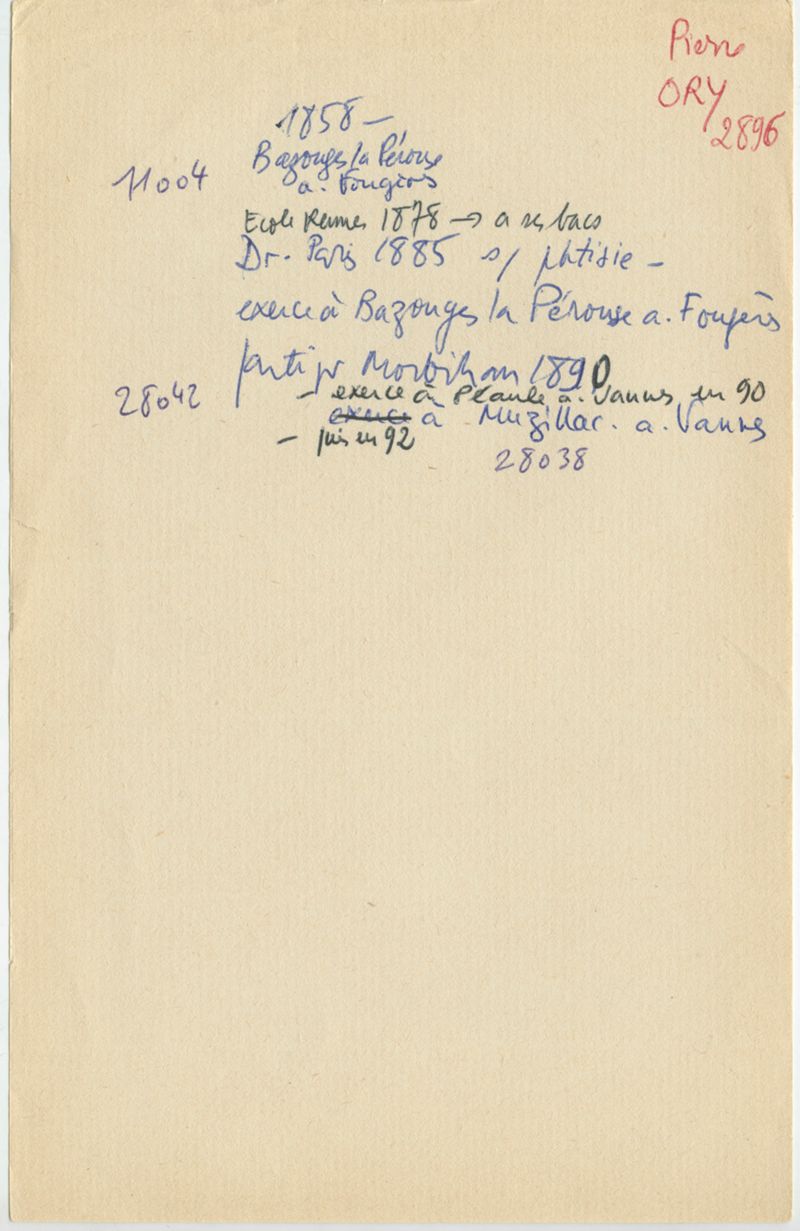 Pierre
ORY
2896
1858 —
Bazouges la Pérouse
11004
a. Fougères
Ecole Rennes 1878 → a ses bacs
Dr. Paris 1885 s/ phtisie —
exerce à Bazouges la Pérouse a. Fougères
parti pr Morbihan 1890
28042
— exerce à Péaule a. Vannes en 90
exerce à Muzillac. a. Vannes
— puis en 92
28038